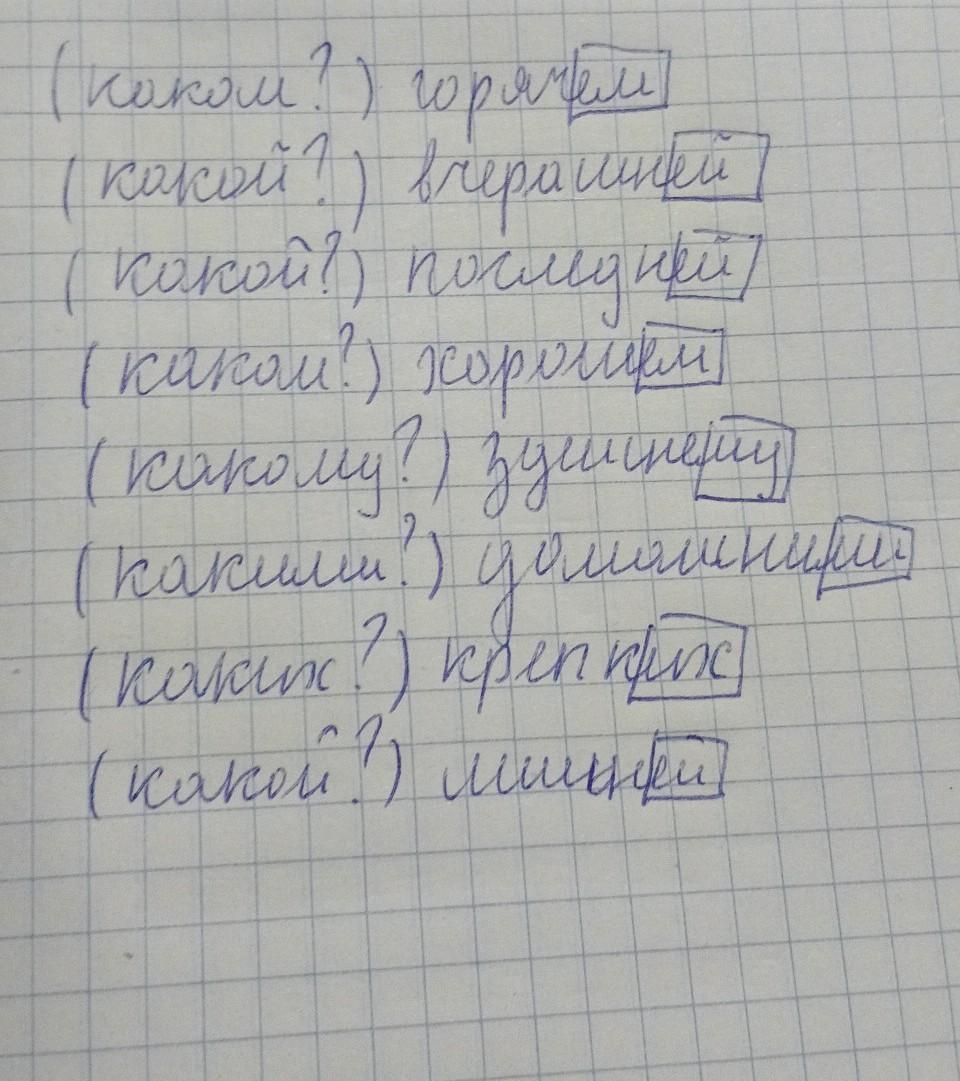 (каком?) горячем
(какой?) вчерашней
(какой?) последней
(каком?) хорошем
(какому?) зимнему
(какими?) домашними
(каких?) крепких
(какой?)